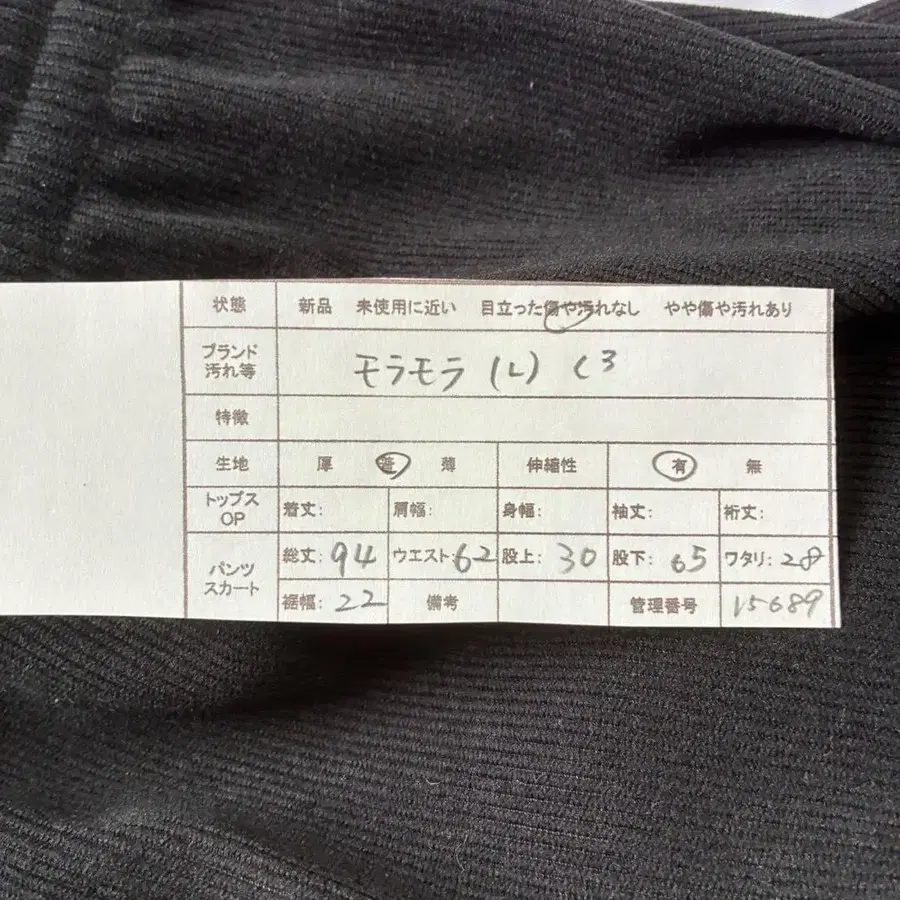 状態 新品 未使用に近い 目立った傷や汚れなし やや傷や汚れあり
ブランド
汚れ等 モラモラ (L) C3
特徴
生地 厚 普 薄 伸縮性 有 無
トップス
OP 着丈: 肩幅: 身幅: 袖丈: 裄丈:
パンツ
スカート 総丈:94 ウエスト:62 股上:30 股下:65 ワタリ:28
裾幅:22 備考 管理番号 15689